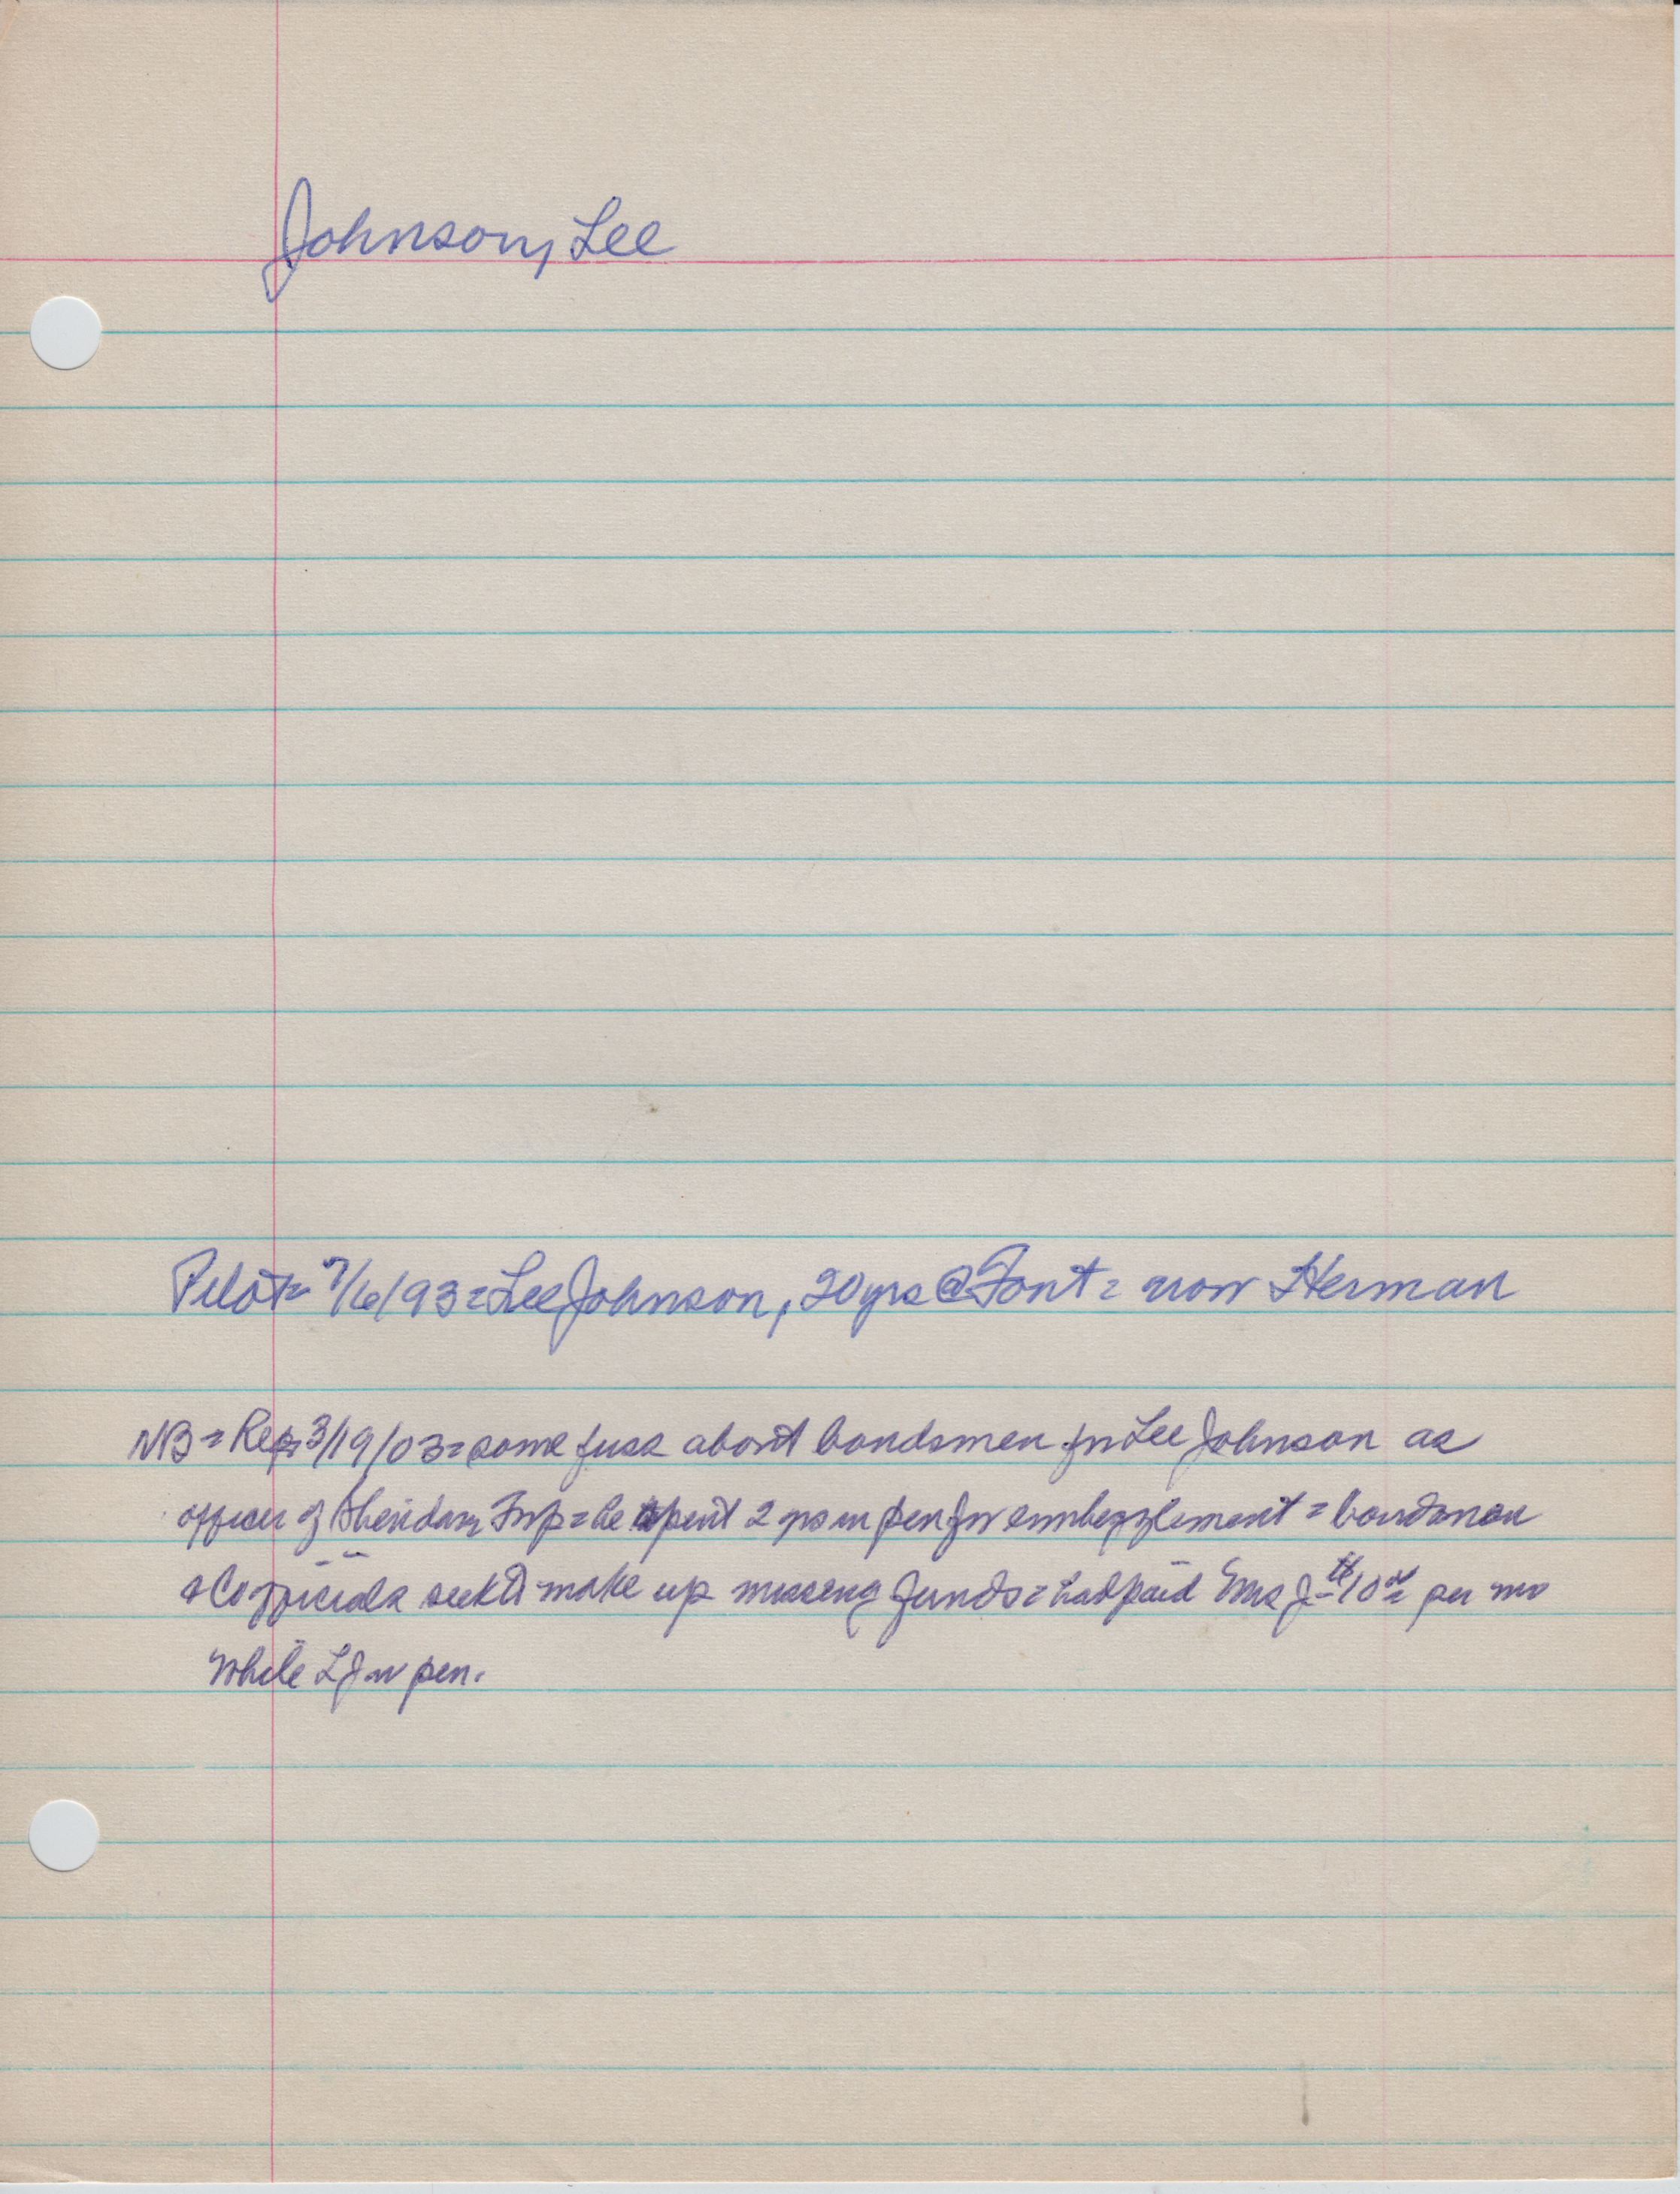 Johnson, Lee
Pilot= 7/6/93=Lee Johnson, 20 yrs @ Font= now Herman
NB=Rep 3/19/03=some fuss about bondsmen for Lee Johnson as
officer of Sheridan Twp=he spent 2 yrs in pen for embezzlement=bondsmen
& Co officials seek to make up missing funds=had paid Mrs J 10 per mo
while LJ in pen.